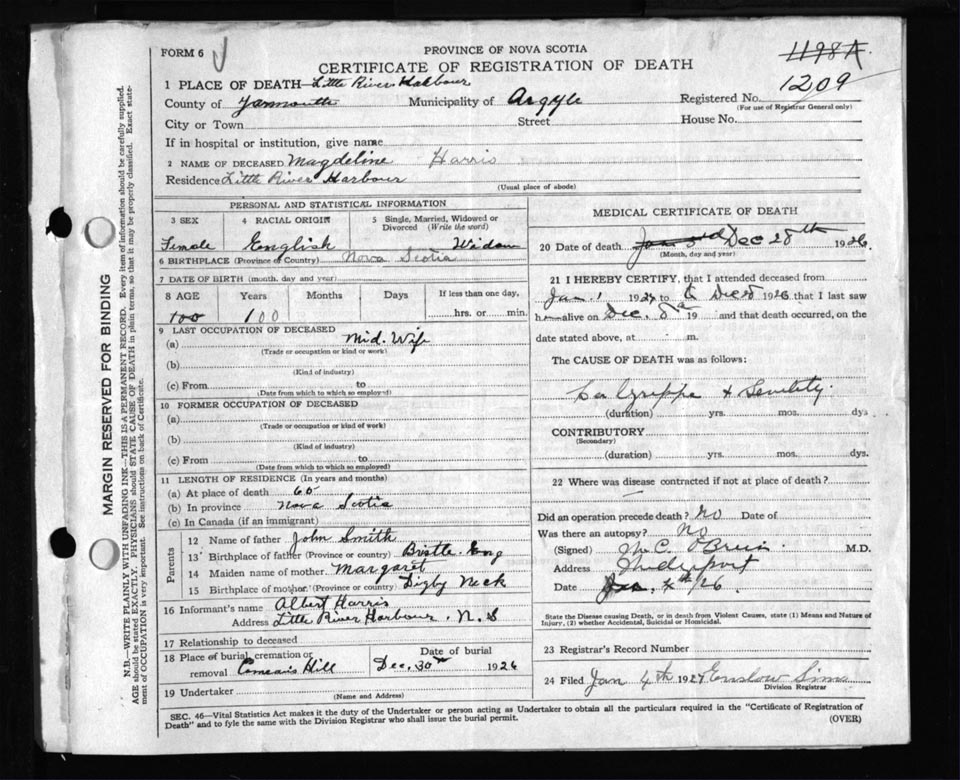 FORM 6
PROVINCE OF NOVA SCOTIA
CERTIFICATE OF REGISTRATION OF DEATH
1198A.
1209
1 PLACE OF DEATH—Little River Harbour
County of Yarmouth Municipality of Argyle Registered No.
(For use of Registrar General only)
City or Town Street House No.
If in hospital or institution, give name
2 NAME OF DECEASED Magdeline Harris
Residence Little River Harbour
(Usual place of abode)
PERSONAL AND STATISTICAL INFORMATION
3 SEX 4 RACIAL ORIGIN 5 Single, Married, Widowed or Divorced (Write the word)
Female English Widow
6 BIRTHPLACE (Province or Country) Nova Scotia
7 DATE OF BIRTH (month, day and year)
8 AGE Years Months Days If less than one day,
100 100 hrs. or min.
9 LAST OCCUPATION OF DECEASED
(a) Mid. Wife
(Trade or occupation or kind or work)
(b)
(Kind of industry)
(c) From to
(Date from which to which so employed)
10 FORMER OCCUPATION OF DECEASED
(a)
(Trade or occupation or kind of work)
(b)
(Kind of industry)
(c) From to
(Date from which to which so employed)
11 LENGTH OF RESIDENCE (In years and months)
(a) At place of death 60
(b) In province Nova Scotia
(c) In Canada (if an immigrant)
Parents
12 Name of father John Smith
13 Birthplace of father (Province or country) Bristle. Eng
14 Maiden name of mother Margaret
15 Birthplace of mother (Province or country) Digby Neck
16 Informant's name Albert Harris
Address Little River Harbour. N. S
17 Relationship to deceased
18 Place of burial, cremation or removal Comeais Hill Date of burial Dec. 30th 1926
19 Undertaker
(Name and Address)
MEDICAL CERTIFICATE OF DEATH
20 Date of death Dec 28th 1926.
(Month, day and year)
21 I HEREBY CERTIFY, that I attended deceased from
Jan. 1 192 to Dec 8 1926 that I last saw
h alive on Dec. 8 19 and that death occurred, on the
date stated above, at m.
The CAUSE OF DEATH was as follows:
La Grippe & Senility.
(duration) yrs. mos. dys
CONTRIBUTORY
(Secondary)
(duration) yrs. mos. dys.
22 Where was disease contracted if not at place of death?
Did an operation precede death? No Date of
Was there an autopsy? No
(Signed) M.D.
Address
Date 4th 26
State the Disease causing Death, or in death from Violent Causes, state (1) Means and Nature of Injury, (2) whether Accidental, Suicidal or Homicidal.
23 Registrar's Record Number
24 Filed Jan 4th 1927 Enslow Sims
Division Registrar
SEC. 46—Vital Statistics Act makes it the duty of the Undertaker or person acting as Undertaker to obtain all the particulars required in the "Certificate of Registration of
Death" and to fyle the same with the Division Registrar who shall issue the burial permit.
(OVER)
MARGIN RESERVED FOR BINDING
N.B.—WRITE PLAINLY WITH UNFADING INK—THIS IS A PERMANENT RECORD. Every item of information should be carefully supplied.
AGE should be stated EXACTLY. PHYSICIANS should STATE CAUSE OF DEATH in plain terms, so that it may be properly classified. Exact statement of OCCUPATION is very important. See instructions on back of Certificate.